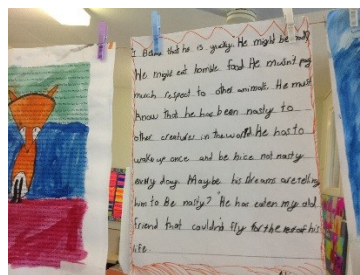 I Believe that he is guilty. He might be
He might eat horrible food. He musn't pay
much respect to other animals. He must
know that he has been nasty to
other creatures in the world. He has to
wake up once and be nice not nasty
every day. Maybe his dreams are telling
him to Be nasty? He has eaten my old
friend that couldn't fly for the rest of his
life.